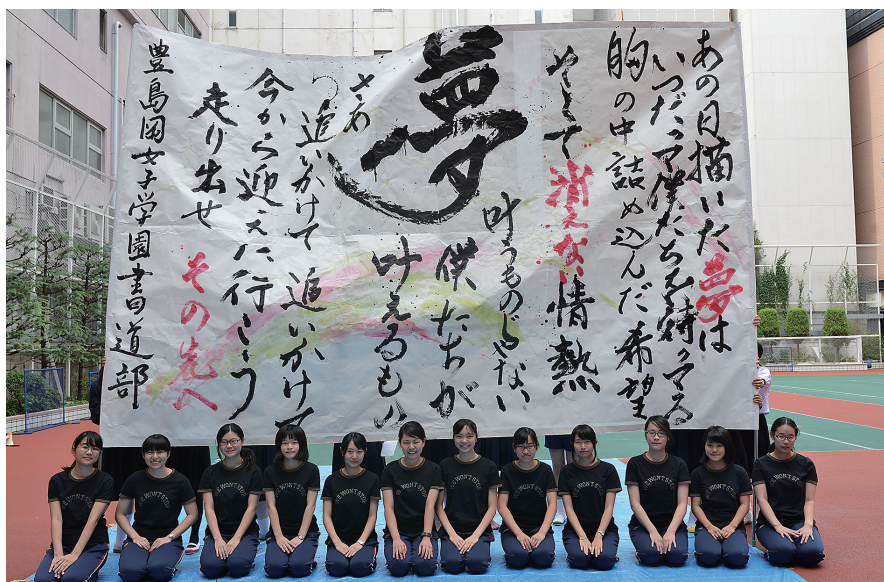 あの日描いた夢は
いつだって僕たちを待ってる
胸の中詰め込んだ希望
そして消えない情熱
夢
叶うものじゃない
僕たちが
叶えるもの
さあ
追いかけて追いかけて
今から迎えに行こう
走り出せ その先へ
豊島岡女子学園書道部